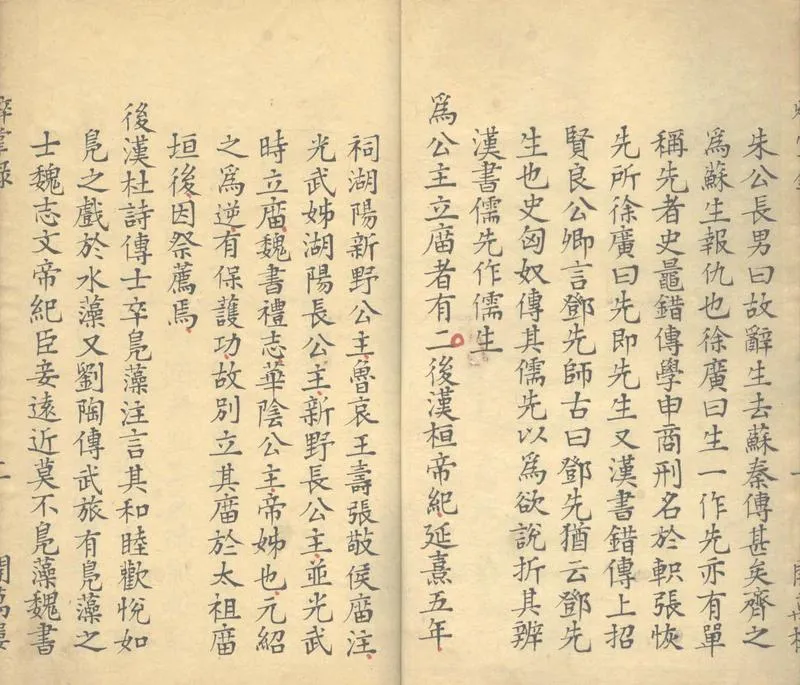 朱公長男曰故辭生去蘇秦傳甚矣齊之
爲蘇生報仇也徐廣曰生一作先亦有單
稱先者史鼂錯傳學申商刑名於軹張恢
先所徐廣曰先即先生又漢書錯傳上招
賢良公卿言鄧先師古曰鄧先猶云鄧先
生也史匈奴傳其儒先以爲欲說折其辨
漢書儒先作儒生
爲公主立庿者有二後漢桓帝紀延熹五年
祠湖陽新野公主魯哀王壽張敬侯庿注
光武姊湖陽長公主新野長公主並光武
時立庿魏書禮志華陰公主帝姊也元紹
之爲逆有保護功故別立其庿於太祖庿
垣後因祭薦焉
後漢杜詩傳士卒鳧藻注言其和睦歡悅如
鳧之戲於水藻又劉陶傳武旅有鳧藻之
士魏志文帝紀臣妾遠近莫不鳧藻魏書